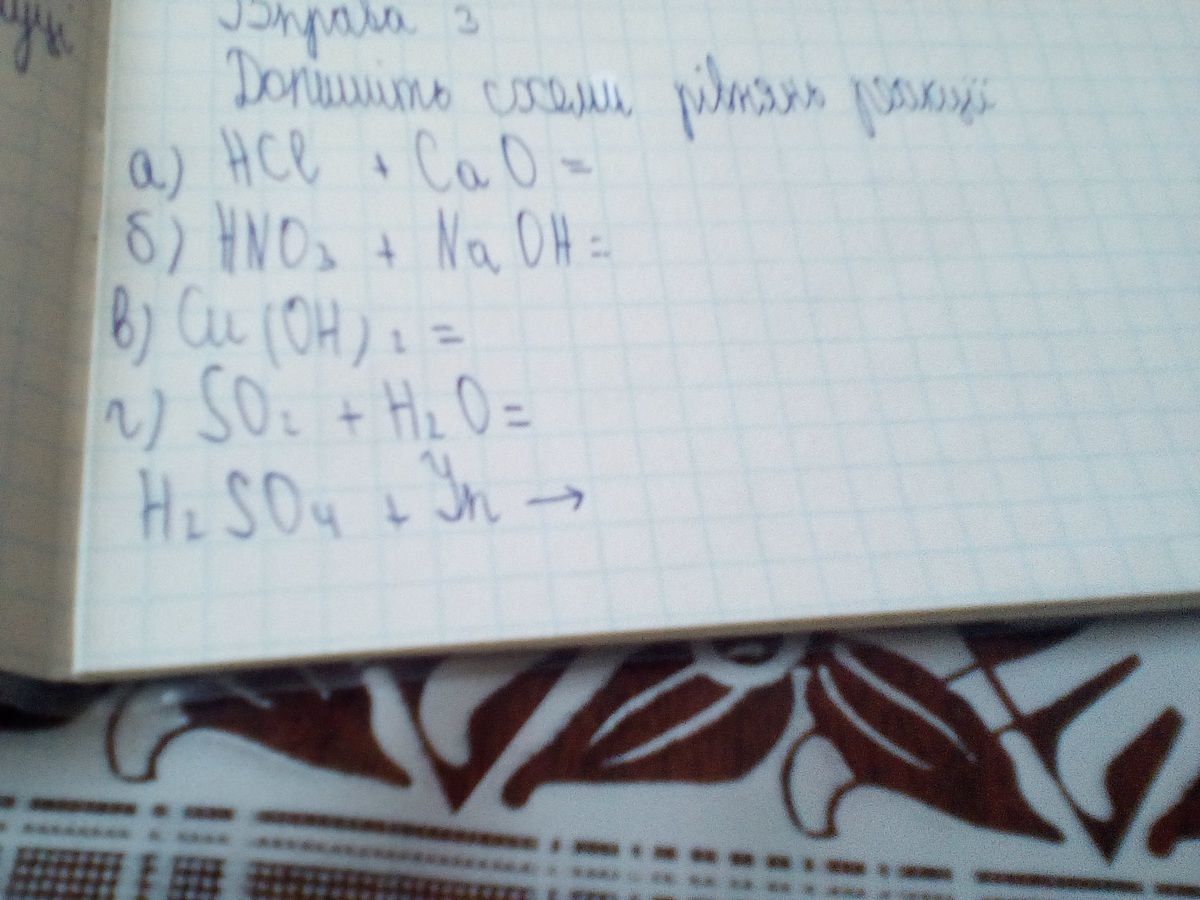 Вправа 3
Допишіть схеми рівнянь реакції
а) HCl + CaO =
б) HNO₃ + NaOH =
в) Cu(OH)₂ =
г) SO₂ + H₂O =
H₂SO₄ + Zn →